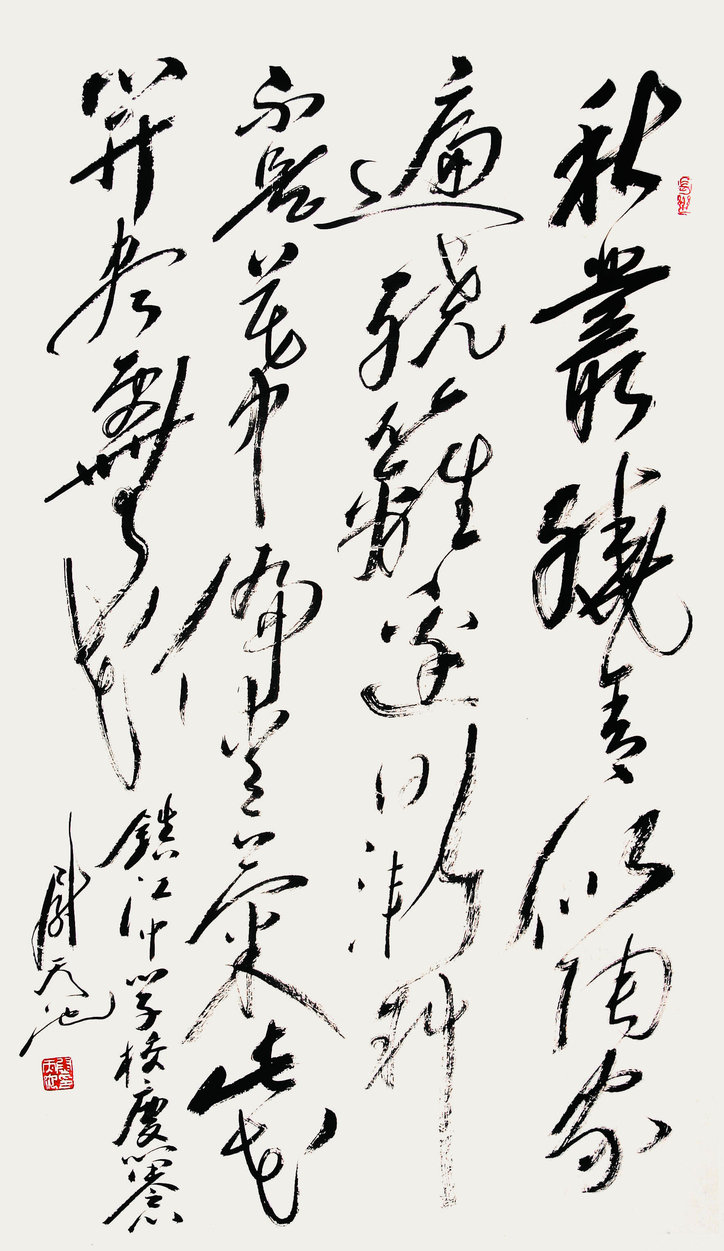 秋叢繞舍似陶家
遍繞籬邊日漸斜
不是花中偏愛菊此花
開盡更無花
鎮江中学校慶
尉天池